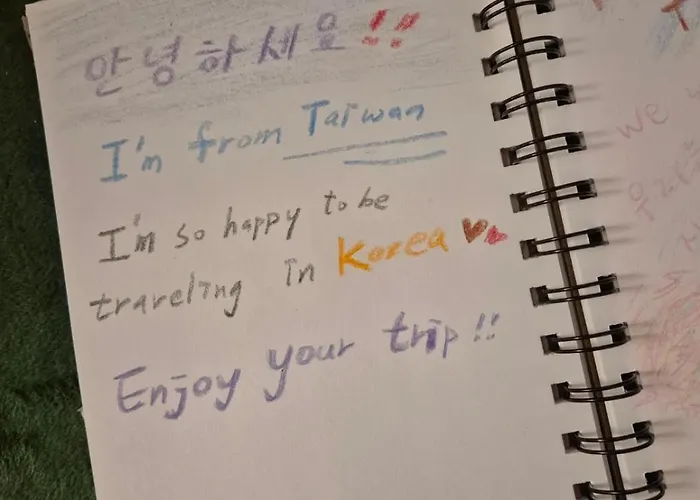 안녕하세요!!
I'm from Taiwan
I'm so happy to be
traveling in Korea ♥♥
Enjoy your trip!!
we